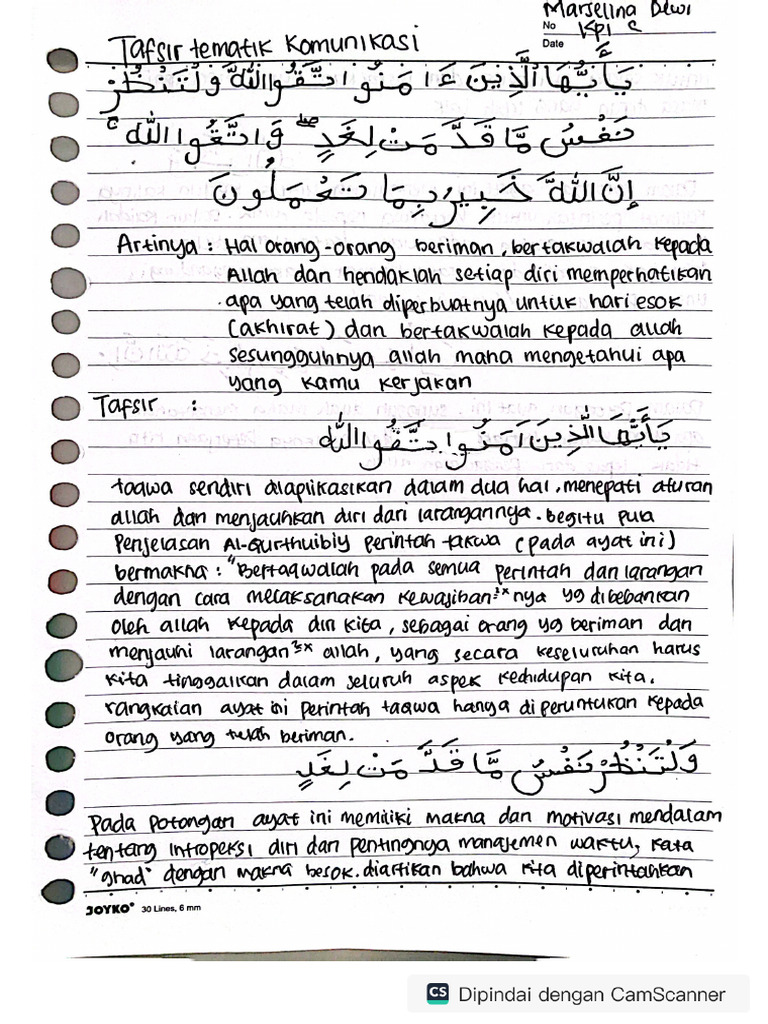 Marselina Dewi
No KPI C
Date
Tafsir tematik komunikasi
يَأَيُّهَا الَّذِينَ ءَامَنُوا اتَّقُوا اللَّهَ وَلْتَنْظُرْ
نَفْسٌ مَّا قَدَّمَتْ لِغَدٍ ۖ وَاتَّقُوا اللَّهَ ۚ
إِنَّ اللَّهَ خَبِيرٌ بِمَا تَعْمَلُونَ
Artinya : Hai orang-orang beriman, bertakwalah kepada
Allah dan hendaklah setiap diri memperhatikan
apa yang telah diperbuatnya untuk hari esok
(akhirat) dan bertakwalah kepada allah
sesungguhnya allah maha mengetahui apa
yang kamu kerjakan
Tafsir :
يَأَيُّهَا الَّذِينَ آمَنُوا تَّقُوا اللَّهَ
taqwa sendiri dilaplikasikan dalam dua hal, menepati aturan
allah dan menjauhkan diri dari larangannya. begitu pula
penjelasan Al-Qurthuibiy perintah takwa (pada ayat ini)
bermakna : "Bertaqwalah pada semua perintah dan larangan
dengan cara melaksanakan kewajiban²ˣnya yg dibebankan
oleh allah kepada diri kita, sebagai orang yg beriman dan
menjauhi larangan²ˣ allah, yang secara keseluruhan harus
kita tinggalkan dalam seluruh aspek kehidupan kita.
rangkaian ayat ini perintah taqwa hanya di peruntukan kepada
orang yang telah beriman.
وَلْتَنْظُرْ نَفْسٌ مَّا قَدَّمَتْ لِغَدٍ
Pada potongan ayat ini memiliki makna dan motivasi mendalam
tentang intropeksi diri dan pentingnya manajemen waktu, kata
"ghad" dengan makna besok. diartikan bahwa kita diperintahkan
JOYKO® 30 Lines, 6 mm
CS Dipindai dengan CamScanner